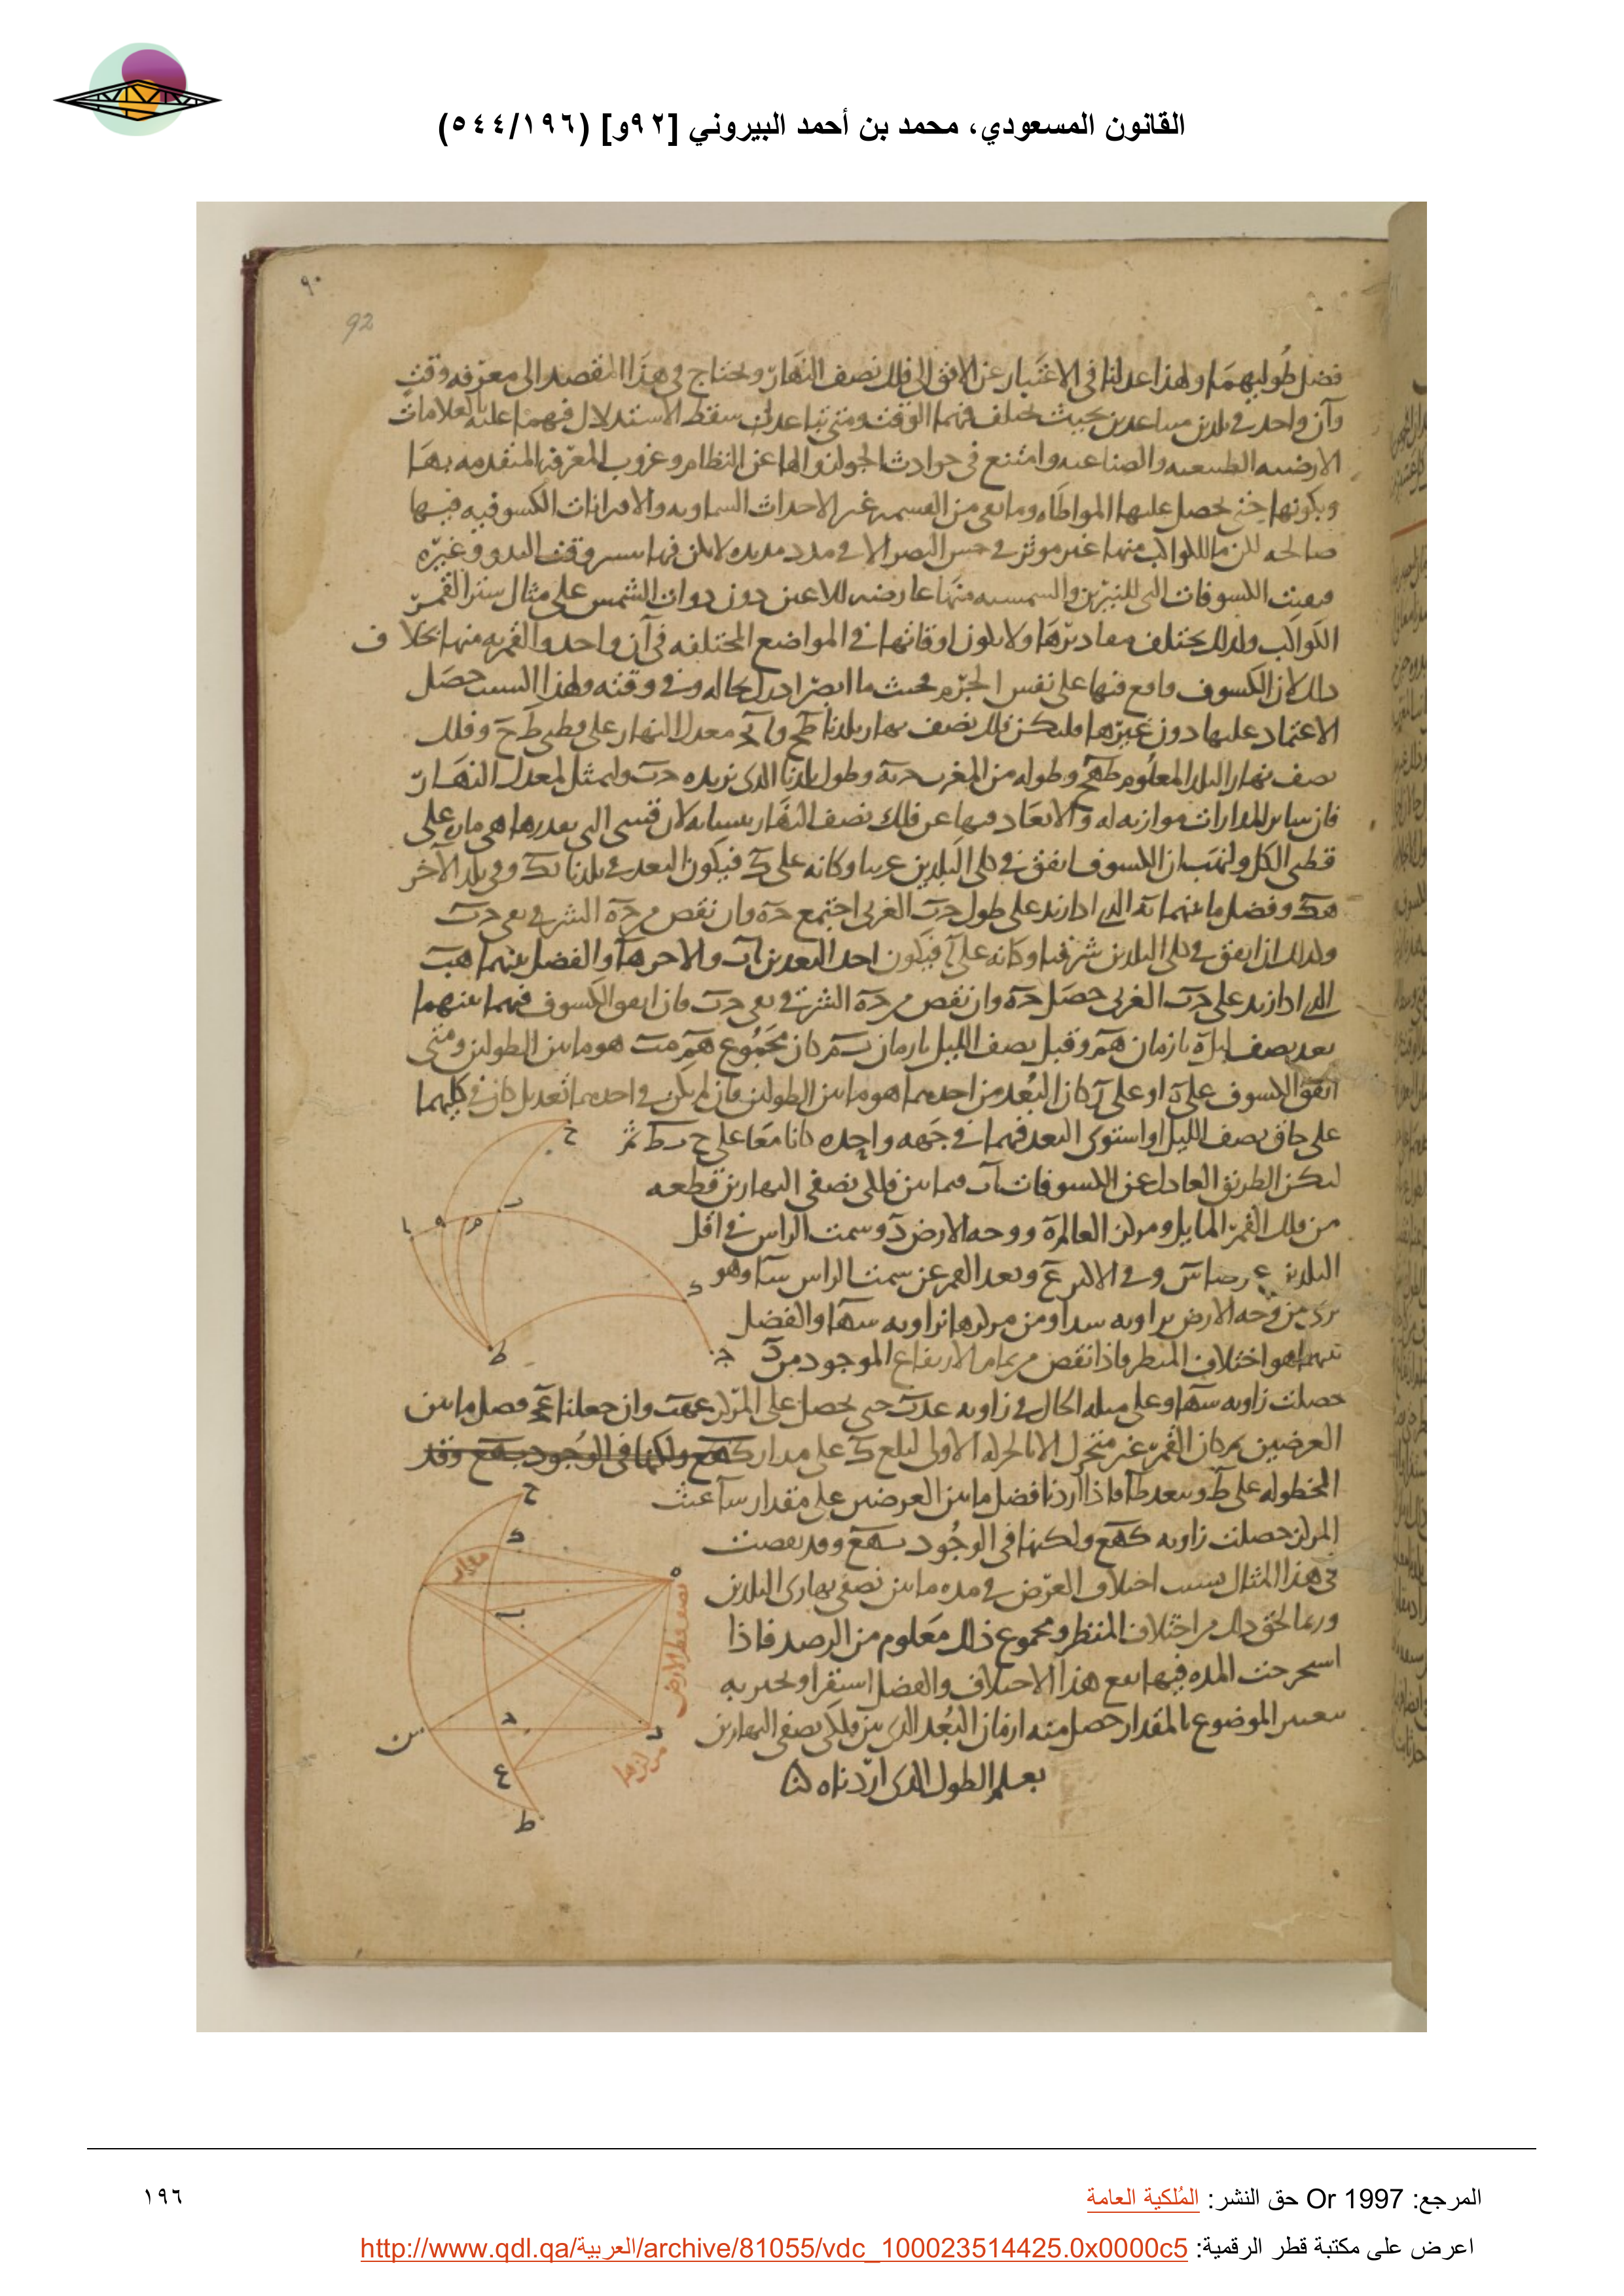 القانون المسعودي، محمد بن أحمد البيروني [٩٢و] (٥٤٤/١٩٦)
٩٠
92
فضل طوليهما ولهذا عدلنا في الاعتبار عن الافق الى فلك نصف النهار ونحتاج في هذا المقصد الى معرفه وقت
وآن واحد في بلدين متباعدين بحيث يختلف فيهما الوقت ومتى تباعدا سقط الاستدلال فيهما عليه بالعلامات
الارضيه الطبيعيه والصناعيه وامتنع في حوادث الجو عن النظام وعزوب المعرفه المتقدمه بها
وبكونها حتى يحصل عليها المواطاه وما بقي من القسمه غير الاحداث السماويه والاقترانات الكسوفيه فيها
صالحه لكن ما للكواكب منها غير موثر في حس البصر الا في مدد مديده لا يمكن فيها وقت البدو وغيره
فبقيت الكسوفات التي للنيرين والشمسيه منها عارضه للاعين دون ذوات الشمس على مثال ستر القمر
الكواكب ولذلك يختلف مقاديرها ولا يكون اوقاتها في المواضع المختلفه في آن واحد والقمريه منها بخلاف
ذلك لان الكسوف واقع فيها على نفس الجرم فحيث ما ابصر ادرك بحاله وفي وقته ولهذا السبب حصل
الاعتماد عليها دون غيرها فليكن فلك نصف نهار بلدنا طح و معدل النهار على قطبي ط ح وفلك
نصف نهار البلد المعلوم طهح وطوله من المغرب حه وطول بلدنا الذي نريده حب ولنمثل لمعدل النهار
فان ساير المدارات موازيه له والابعاد فيها عن فلك نصف النهار لان قسي التي بعدرها هي ماره على
قطبي الكل ولنهب ان الكسوف اتفق في كلي البلدين غربيا وكانه على ك فيكون البعد في بلدنا بك وفي بلد الآخر
هك وفضل ما بينهما به الذي اذا زيد على طول حب الغربي اجتمع حه وان نقص من حه الشرقي بقي حب
وكذلك ان اتفق في كلي البلدين شرقيا وكانه على آ فيكون احد البعدين آب والاخر هآ والفضل بينهما هب
الذي اذا زيد على حب الغربي حصل حه وان نقص من حه الشرقي بقي حب فان اتفق الكسوف فيهما بينهما
بعد نصف ليل ه بازمان هم وقبل نصف الليل بازمان كان مجموع هم مب هو ما بين الطولين ومتى
اتفق الكسوف على ه او على ب كان البعد من احدهما هو ما بين الطولين فان لم يكن في احدهما تعديل كان في كليهما
على حاق نصف الليل او استوى البعد فيهما في جهه واحده كانا معا على ح ب ط ثم
ليكن الطريق العادل عن الكسوفات آب فيما بين فلكي نصفي النهارين قطعه
من فلك القمر المايل ومركز العالم ه ووجه الارض د وسمت الراس في اقل
البلدين عرضا س وفي الاكبر ع وبعد القمر عن سمت الراس سآ وهو
يرى من وجه الارض بزاويه سدا ومن مركزها بزاويه سهآ والفضل
بينهما هو اختلاف المنظر فاذا نقص من تمام الارتفاع الموجود من د
حصلت زاويه سهآ وعلى مثله الحال في زاويه عدب حتى يحصل على المركز عهب وان جعلنا فضل ما بين
العرضين كان القمر غير متحرك الا بالحركه الاولى لبلغ ك على مدار
المخطوطه على ط وببعد طآ فاذا اردنا فضل ما بين العرضين على مقدار سآ عند
المركز حصلت زاويه كهع ولكنها في الوجود بهع وقد نقصت
في هذا المثال بسبب اختلاف العرض في مده ما بين نصفي نهاري البلدين
وربما لحق ذلك من اختلاف المنظر ومجموع ذلك معلوم من الرصد فاذا
استخرجت المده فيها مع هذا الاختلاف والفضل استقرا
الموضوع بالمقدار حصل منه ازمان البعد الذي بين فلكي نصفي النهارين
يعلم الطول الذي اردناه لنا
ح
ب
م
ه
ا
ك
ط
ج
ح
ك
مدار
ه
ب
نصف قطر الارض
د
س
مركزها
ع
ط
المرجع: Or 1997 حق النشر: المُلكية العامة
١٩٦
اعرض على مكتبة قطر الرقمية: http://www.qdl.qa/العربية/archive/81055/vdc_100023514425.0x0000c5